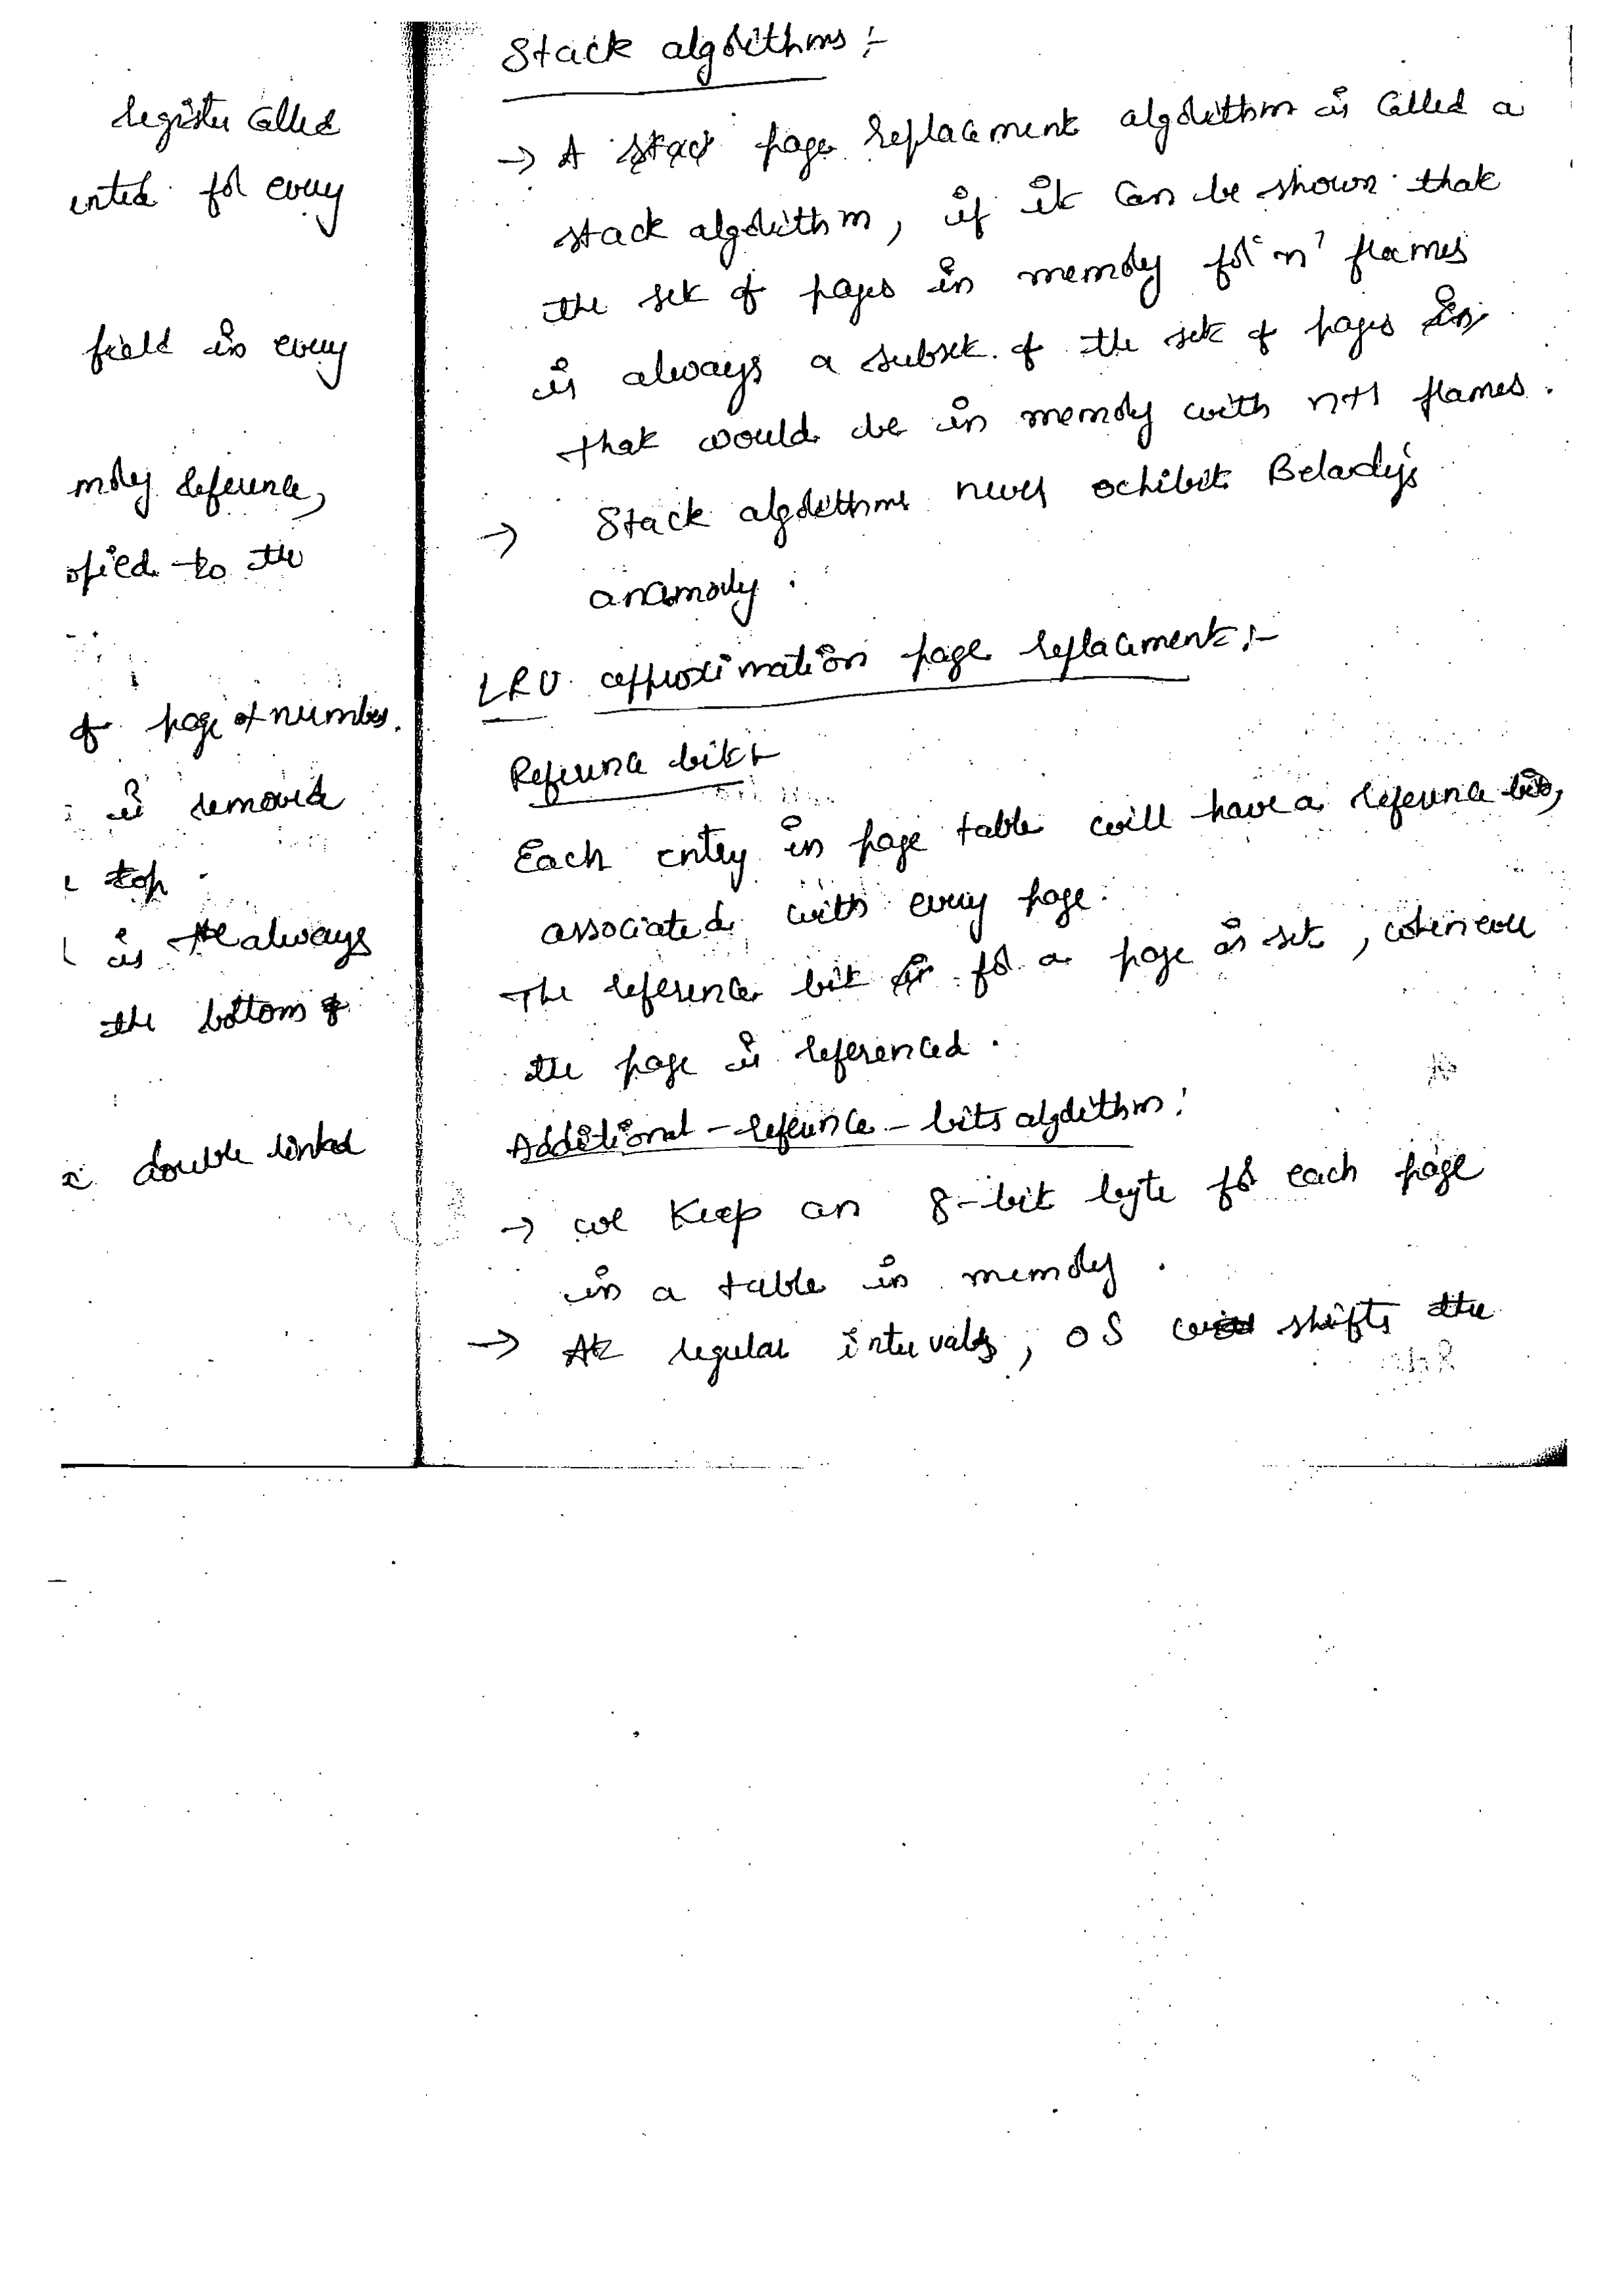 register called
ented for every
field in every
mory reference,
opied to the
of page number.
is removed
top.
is always
the bottom of
double linked
Stack algorithms :-
→ A page replacement algorithm is called a
stack algorithm, if it can be shown that
the set of pages in memory for 'n' frames
is always a subset of the set of pages
that would be in memory with n+1 frames.
→ Stack algorithms never exhibit Belady's
anamoly.
LRU approximation page replacement :-
Reference bit :-
Each entry in page table will have a reference bit,
associated with every page.
The reference bit for a page is set, whenever
the page is referenced.
Additional - reference - bits algorithm :
→ we Keep an 8-bit byte for each page
in a table in memory.
→ At regular intervals, OS shifts the